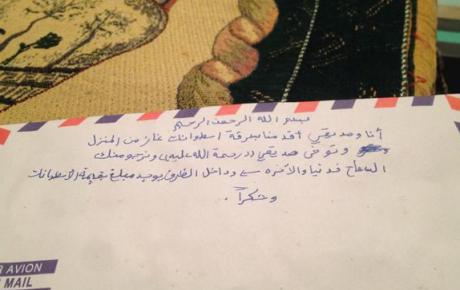 بسم الله الرحمن الرحيم
أنا وصديقي أقدمنا بسرقة اسطوانات غاز من المنزل
وتوفى صديقي ((رحمة الله عليه)) ونرجو منك
السماح في دنيا والآخرة وداخل الظرف يوجد مبلغ بقيمة الاسطوانات
وشكراً.
AVION
MAIL